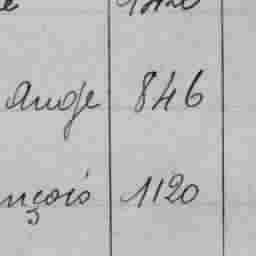 Ange 846
nçois 1120